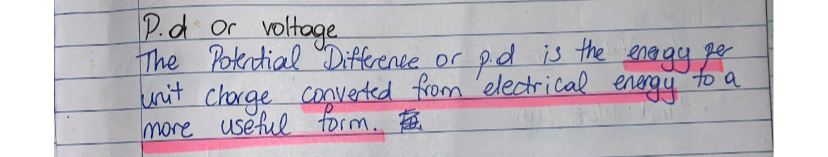 P.d or voltage
The Potential Difference or p.d is the energy per
unit charge converted from electrical energy to a
more useful form.